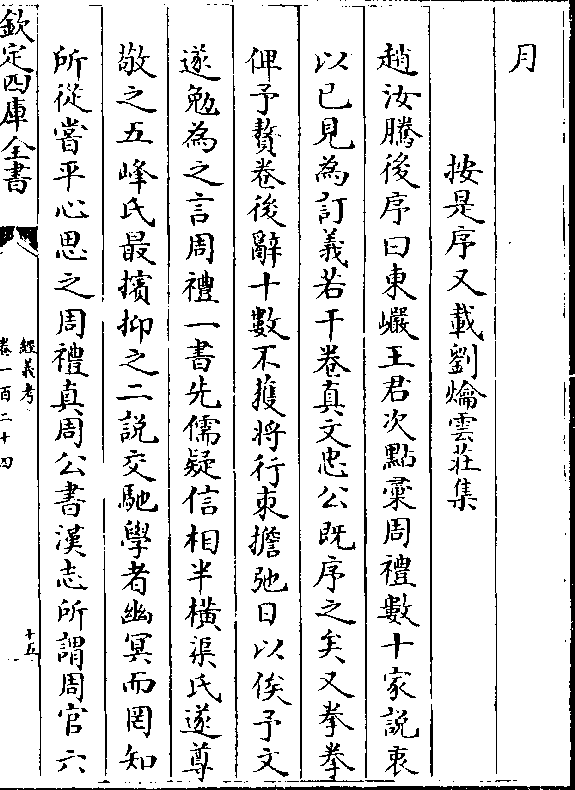 月
按是序又載劉爚雲莊集
趙汝騰後序曰東巖王君次點稾周禮數十家說衷
以已見為訂義若干卷真文忠公既序之矣又拳拳
俾予贅卷後辭十數不獲將行束擔弛日以俟予文
遂勉為之言周禮一書先儒疑信相半橫渠氏遂尊
敬之五峰氏最擯抑之二說交馳學者幽冥而罔知
所從嘗平心思之周禮真周公書漢志所謂周官六
欽定四庫全書
經義考
卷一百二十四
十五